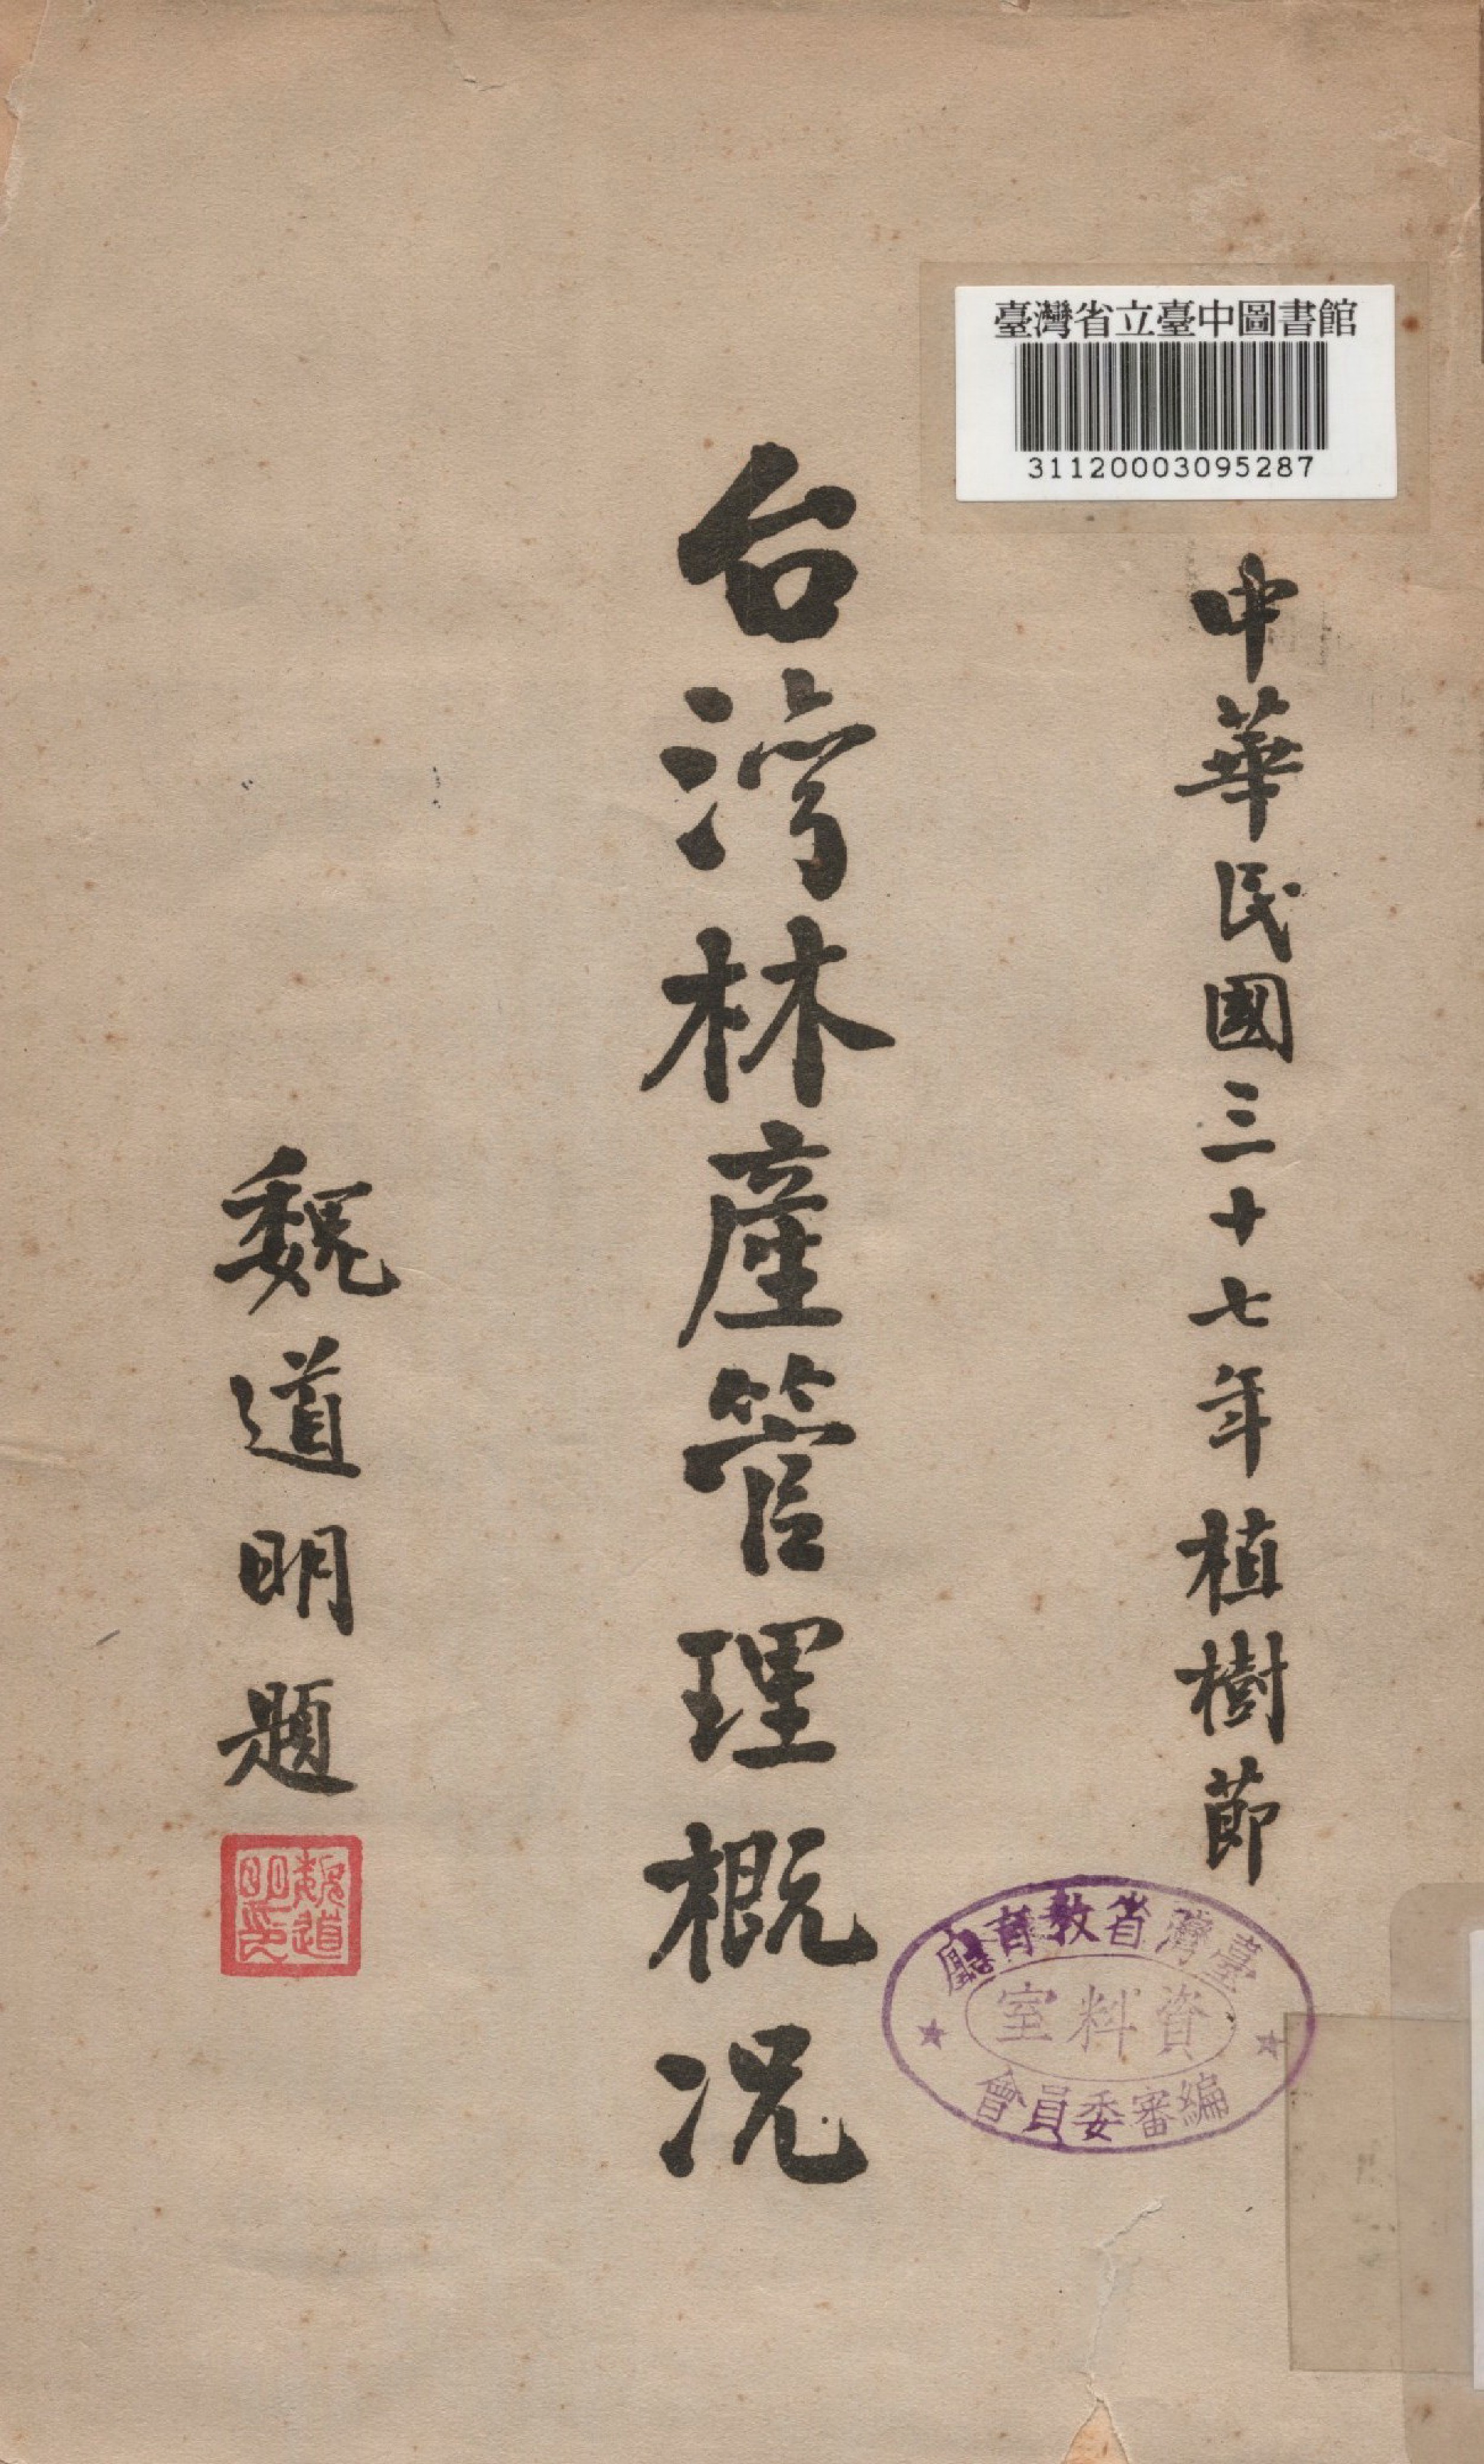 臺灣省立臺中圖書館
31120003095287
中華民國三十七年植樹節
台湾林產管理概况
魏道明題
魏道明印
臺灣省教育廳
資料室
編審委員會